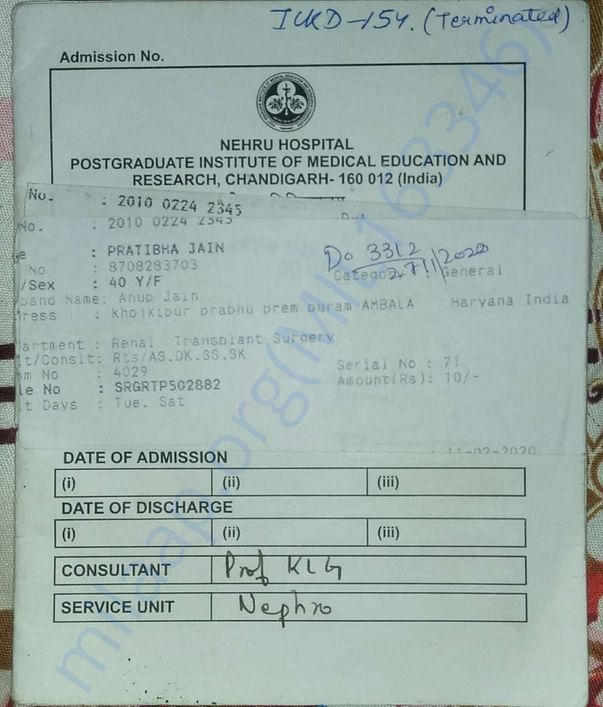 ICKD-154. (Terminated)
Admission No.
NEHRU HOSPITAL
POSTGRADUATE INSTITUTE OF MEDICAL EDUCATION AND
RESEARCH, CHANDIGARH- 160 012 (India)
No. : 2010 0224 2345
No. : 2010 0224 2345
e : PRATIBHA JAIN
No : 8708283703
/Sex : 40 Y/F
Do 3312
27/1/2020
Category : General
band Name: Anup Jain
ress : khojkipur prabhu prem puram AMBALA Haryana India
artment : Renal Transplant Surgery
it/Conslt: Rts/AS.DK.SS.SK
om No : 4029
Serial No : 71
le No : SRGRTP502882
Amount(Rs): 10/-
t Days : Tue. Sat
11-02-2020
DATE OF ADMISSION
(i) (ii) (iii)
DATE OF DISCHARGE
(i) (ii) (iii)
CONSULTANT Prof KLG
SERVICE UNIT Nephro